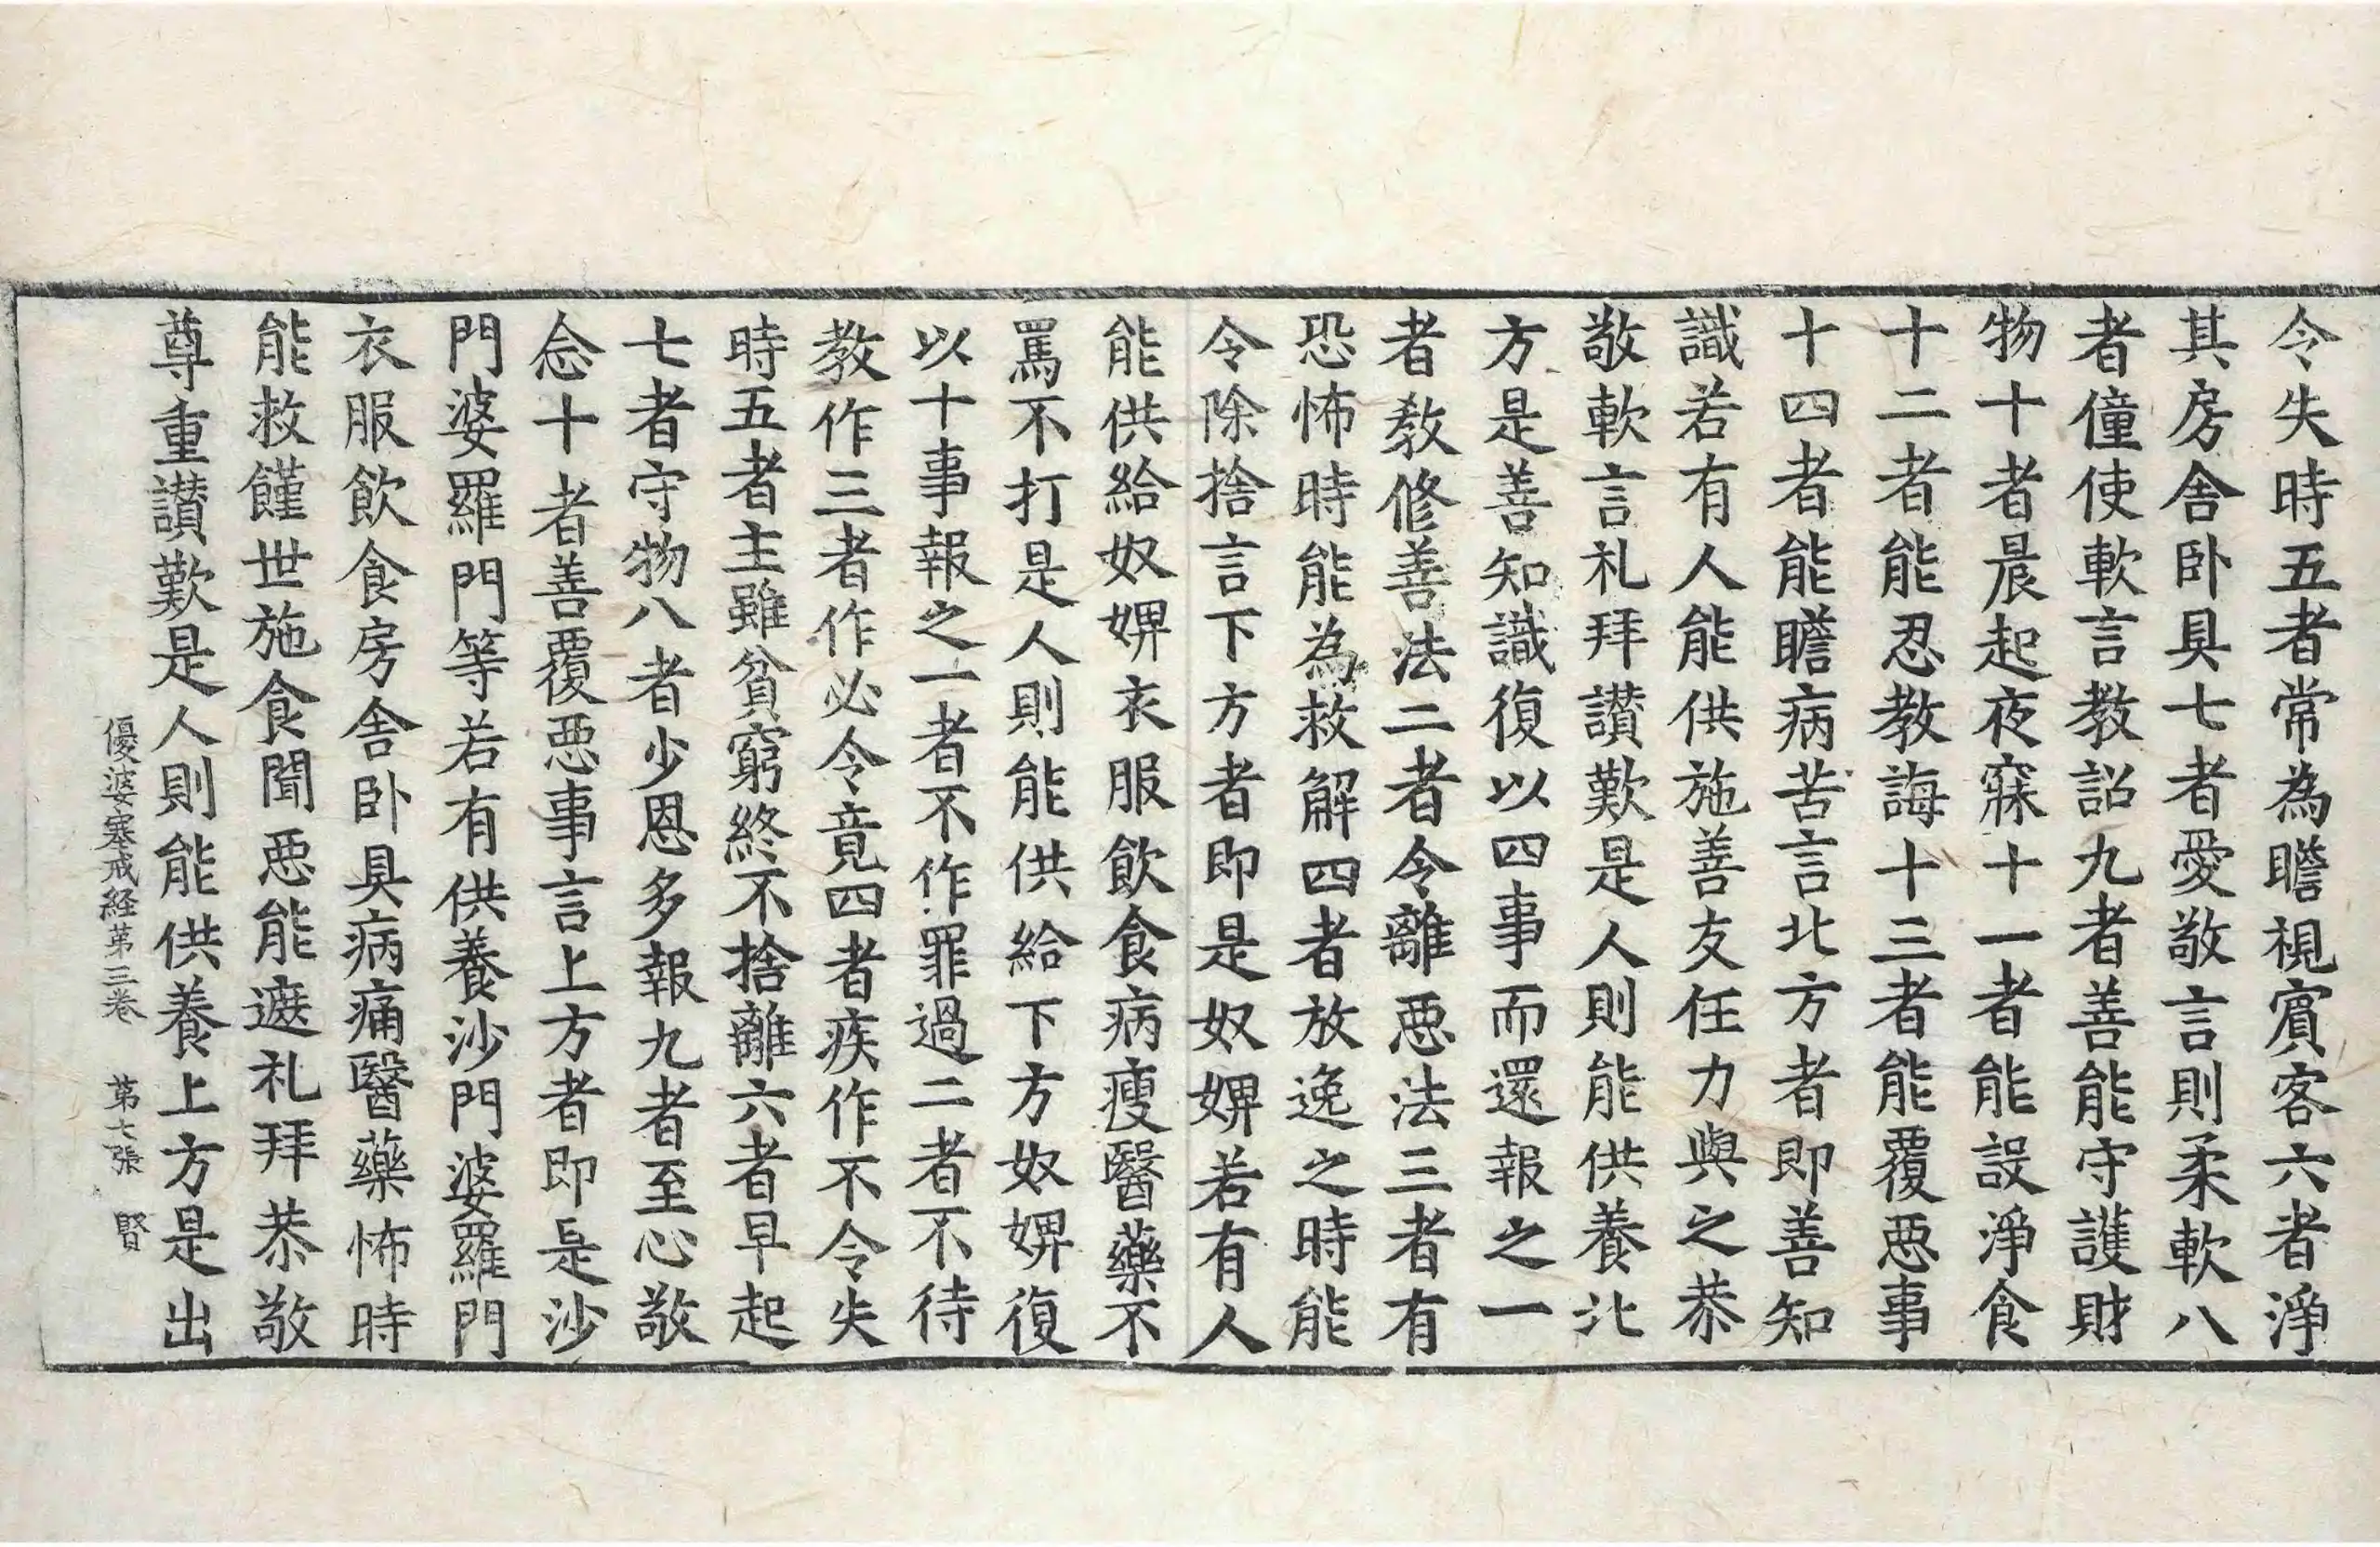 令失時五者常為瞻視賓客六者淨
其房舍卧具七者愛敬言則柔軟八
者僮使軟言教詔九者善能守護財
物十者晨起夜寐十一者能設淨食
十二者能忍教誨十三者能覆惡事
十四者能瞻病苦言北方者即善知
識若有人能供施善友任力與之恭
敬軟言礼拜讃歎是人則能供養北
方是善知識復以四事而還報之一
者教修善法二者令離惡法三者有
恐怖時能為救解四者放逸之時能
令除捨言下方者即是奴婢若有人
能供給奴婢衣服飲食病瘦醫藥不
罵不打是人則能供給下方奴婢復
以十事報之一者不作罪過二者不待
教作三者作必令竟四者疾作不令失
時五者主雖貧窮終不捨離六者早起
七者守物八者少恩多報九者至心敬
念十者善覆惡事言上方者即是沙
門婆羅門等若有供養沙門婆羅門
衣服飲食房舍卧具病痛醫藥怖時
能救饉世施食聞惡能遮礼拜恭敬
尊重讃歎是人則能供養上方是出
優婆塞戒経第三卷 第七張 賢